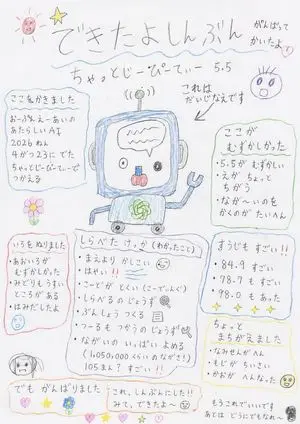 できたよしんぶん
がんばって
かいたよ！
ちゃっとじーぴーてぃー 5.5
これは
だいじなえです
ここをかきました
おーぷんえーあいの
あたらしいAI
2026ねん
4がつ23にでた
ちゃっとじーぴーてーで
つかえる
ここが
むずかしかった
・5.5がむずかしい
・えがちょっと
ちがう
・ながーいのを
かくのがたいへん
いろをぬりました
・あおいろが
むずかしかった
・みどりもうすい
ところがある
・はみだしたよ
しらべたけっか(わかったこと)
・まえよりかしこい
・はやい!!
・こーどがとくい(こーでぃんぐ)
・しらべるのじょうず
・ぶんしょうつくる
・つーるもつかうのじょうず
・ながいのいっぱいよめる
(1050000くらいのながさ!)
105まん？すごい!
すうじもすごい!!
・84.9 すごい
・78.7 もすごい
・98.0 もあった
ちょっと
まちがえました
・なみせんがへん
・もじがちいさい
・かおがへんなった
でもがんばりました
これ、しんぶんにした!!
みて、できたよ〜
もうこれでいいです
あとはどうにでもなれー